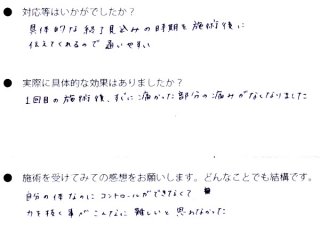 ● 対応等はいかがでしたか？
具体的な終了見込みの時期を施術後に
伝えてくれるので通いやすい
● 実際に具体的な効果はありましたか？
1回目の施術後、すぐに痛かった部分の痛みがなくなりました
● 施術を受けてみての感想をお願いします。どんなことでも結構です。
自分の体なのにコントロールができなくて
力を抜く事がこんなに難しいと思わなかった